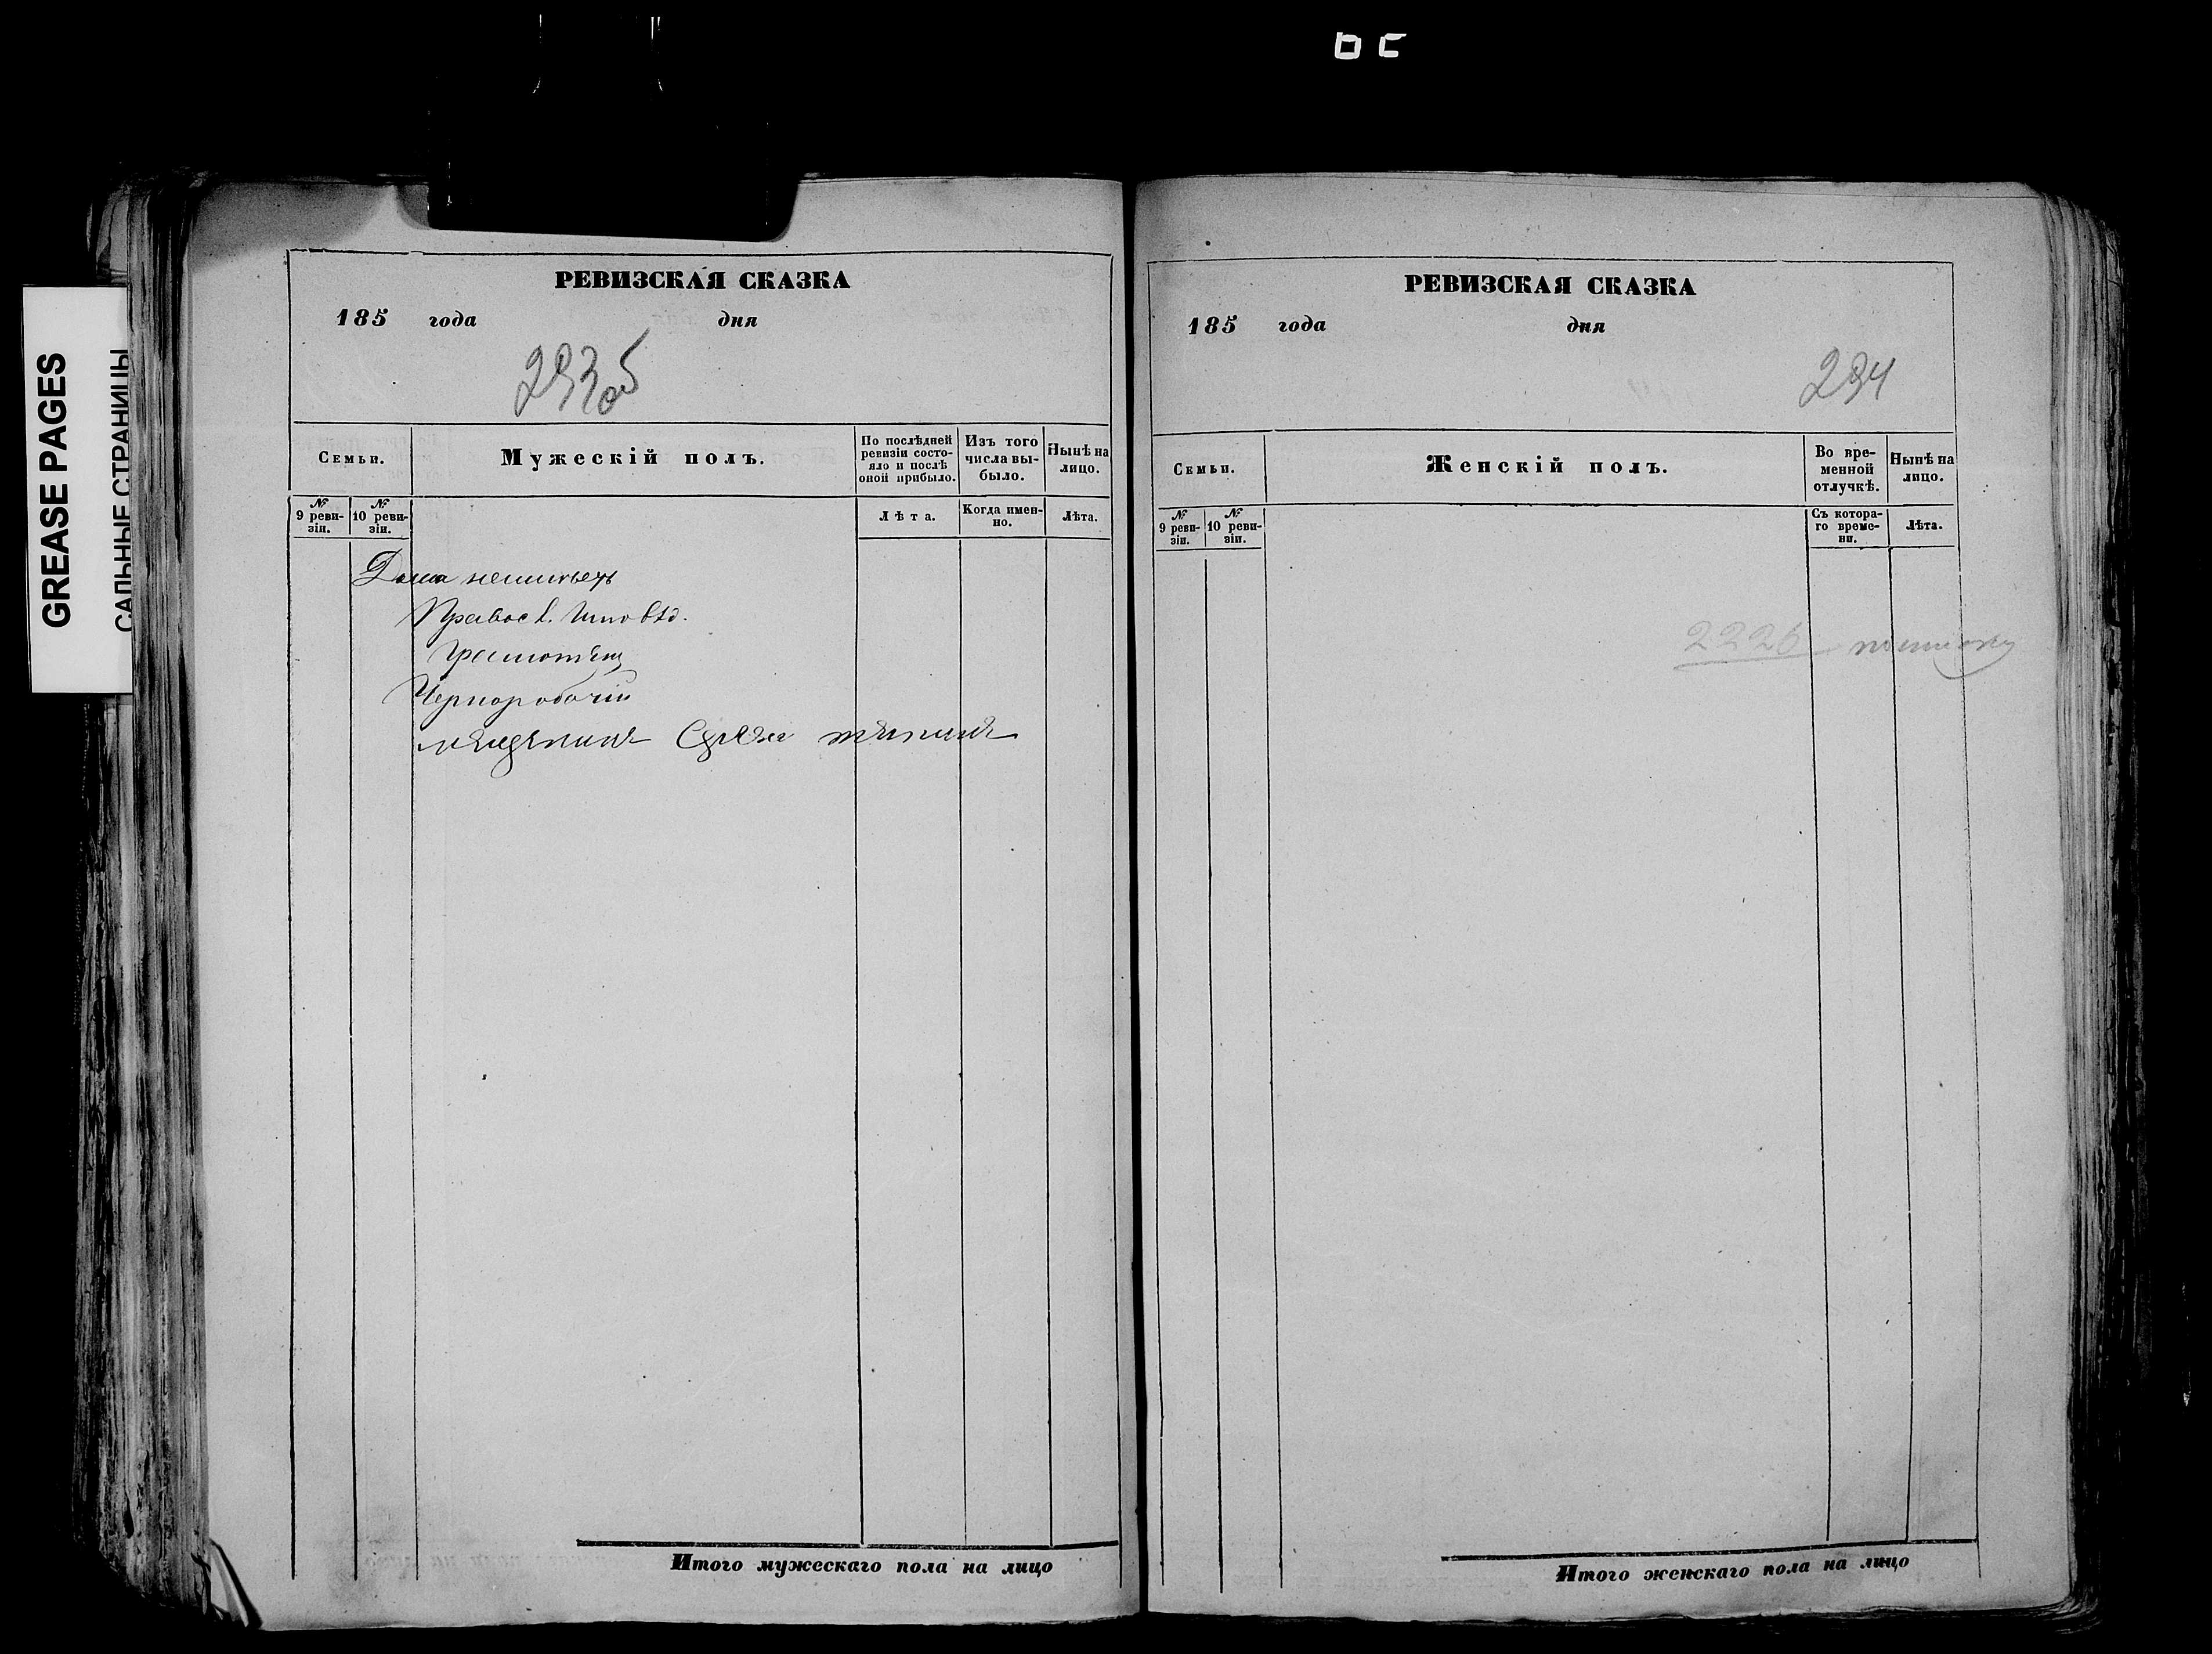 GREASE PAGES
САЛЬНЫЕ СТРАНИЦЫ
РЕВИЗСКАЯ СКАЗКА
185 года дня
293об
Семьи.
Мужескій полъ.
По послѣдней ревизіи состояло и послѣ оной прибыло.
Изъ того числа выбыло.
Нынѣ на лицо.
№ 9 ревизіи.
№ 10 ревизіи.
Лѣта.
Когда именно.
Лѣта.
Дома неимѣетъ
Правосл. Исповѣд.
Грамотѣнъ
Чернорабочій
мещенинъ
Итого мужескаго пола на лицо
РЕВИЗСКАЯ СКАЗКА
185 года дня
294
Семьи.
Женскій полъ.
Во временной отлучкѣ.
Нынѣ на лицо.
№ 9 ревизіи.
№ 10 ревизіи.
Съ котораго времени.
Лѣта.
2226
Итого женскаго пола на лицо